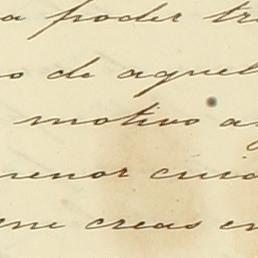 a poder tr
o de aquel
motivo a
menor cuid
que creas en